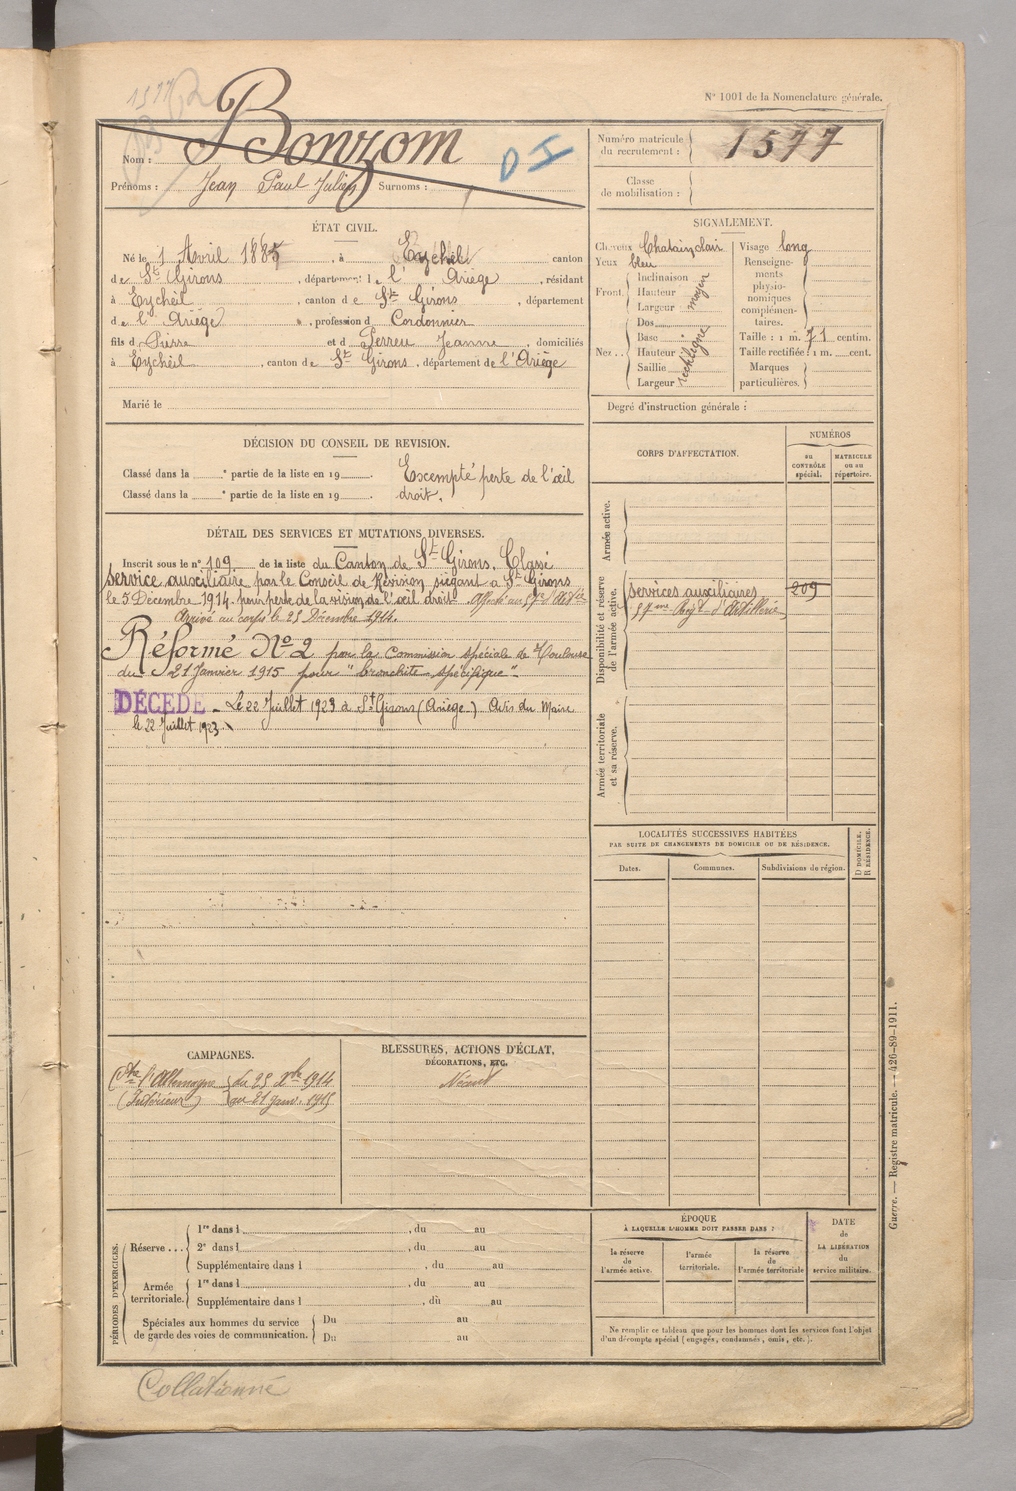 1577
N° 1001 de la Nomenclature générale.
Nom : Bonzom
DI
Prénoms : Jean Paul Julien Surnoms :
Numéro matricule du recrutement : 1577
Classe de mobilisation :
ÉTAT CIVIL.
Né le 1 Avril 1885, à Eycheil canton
de St Girons, département de l'Ariège, résidant
à Eycheil, canton de St Girons, département
de l'Ariège, profession d Cordonnier
fils d Pierre et d Ferreu Jeanne, domiciliés
à Eycheil, canton de St Girons, département de l'Ariège
Marié le
SIGNALEMENT.
Cheveux Chatain clair
Yeux bleu
Front. Inclinaison
Hauteur moyen
Largeur
Nez. Dos
Base
Hauteur rectiligne
Saillie
Largeur
Visage long
Renseignements physionomiques complémentaires.
Taille : 1 m. 71 centim.
Taille rectifiée : 1 m. cent.
Marques particulières.
Degré d'instruction générale :
DÉCISION DU CONSEIL DE REVISION.
Classé dans la e partie de la liste en 19
Classé dans la e partie de la liste en 19
Excempté perte de l'œil
droit.
DÉTAIL DES SERVICES ET MUTATIONS DIVERSES.
Inscrit sous le n° 109 de la liste du Canton de St Girons. Classé
service auxiliaire par le Conseil de Révision siégant à St Girons
le 5 Décembre 1914. pour perte de la vision de l'œil droit. Affecté au 57e d'Artie
Arrivé au corps le 25 Décembre 1914.
Réformé N° 2 par la Commission spéciale de Toulouse
du 21 Janvier 1915 pour "bronchite spécifique".
DÉCÉDÉ - Le 22 Juillet 1923 à St Girons (Ariège) Avis du Maire
le 22 Juillet 1923.
CORPS D'AFFECTATION.
NUMÉROS
au CONTRÔLE spécial.
MATRICULE ou au répertoire.
Armée active.
Disponibilité et réserve de l'armée active.
Services auxiliaires 209
57me Regt d'Artillerie
Armée territoriale et sa réserve.
LOCALITÉS SUCCESSIVES HABITÉES
PAR SUITE DE CHANGEMENTS DE DOMICILE OU DE RÉSIDENCE.
Dates.
Communes.
Subdivisions de région.
D DOMICILE, R RÉSIDENCE.
CAMPAGNES.
Ctre l'Allemagne du 25 Xbre 1914
(Intérieur) au 21 janv. 1915
BLESSURES, ACTIONS D'ÉCLAT,
DÉCORATIONS, ETC.
Néant
PÉRIODES D'EXERCICES.
Réserve... 1re dans l , du au
2e dans l , du au
Supplémentaire dans l , du au
Armée territoriale. 1re dans l , du au
Supplémentaire dans l , du au
Spéciales aux hommes du service de garde des voies de communication. Du au
Du au
ÉPOQUE
À LAQUELLE L'HOMME DOIT PASSER DANS :
la réserve de l'armée active.
l'armée territoriale.
la réserve de l'armée territoriale
DATE de LA LIBÉRATION du service militaire.
Ne remplir ce tableau que pour les hommes dont les services font l'objet
d'un décompte spécial (engagés, condamnés, omis, etc.).
Guerre. — Registre matricule. — 426-89-1911.
Collationné